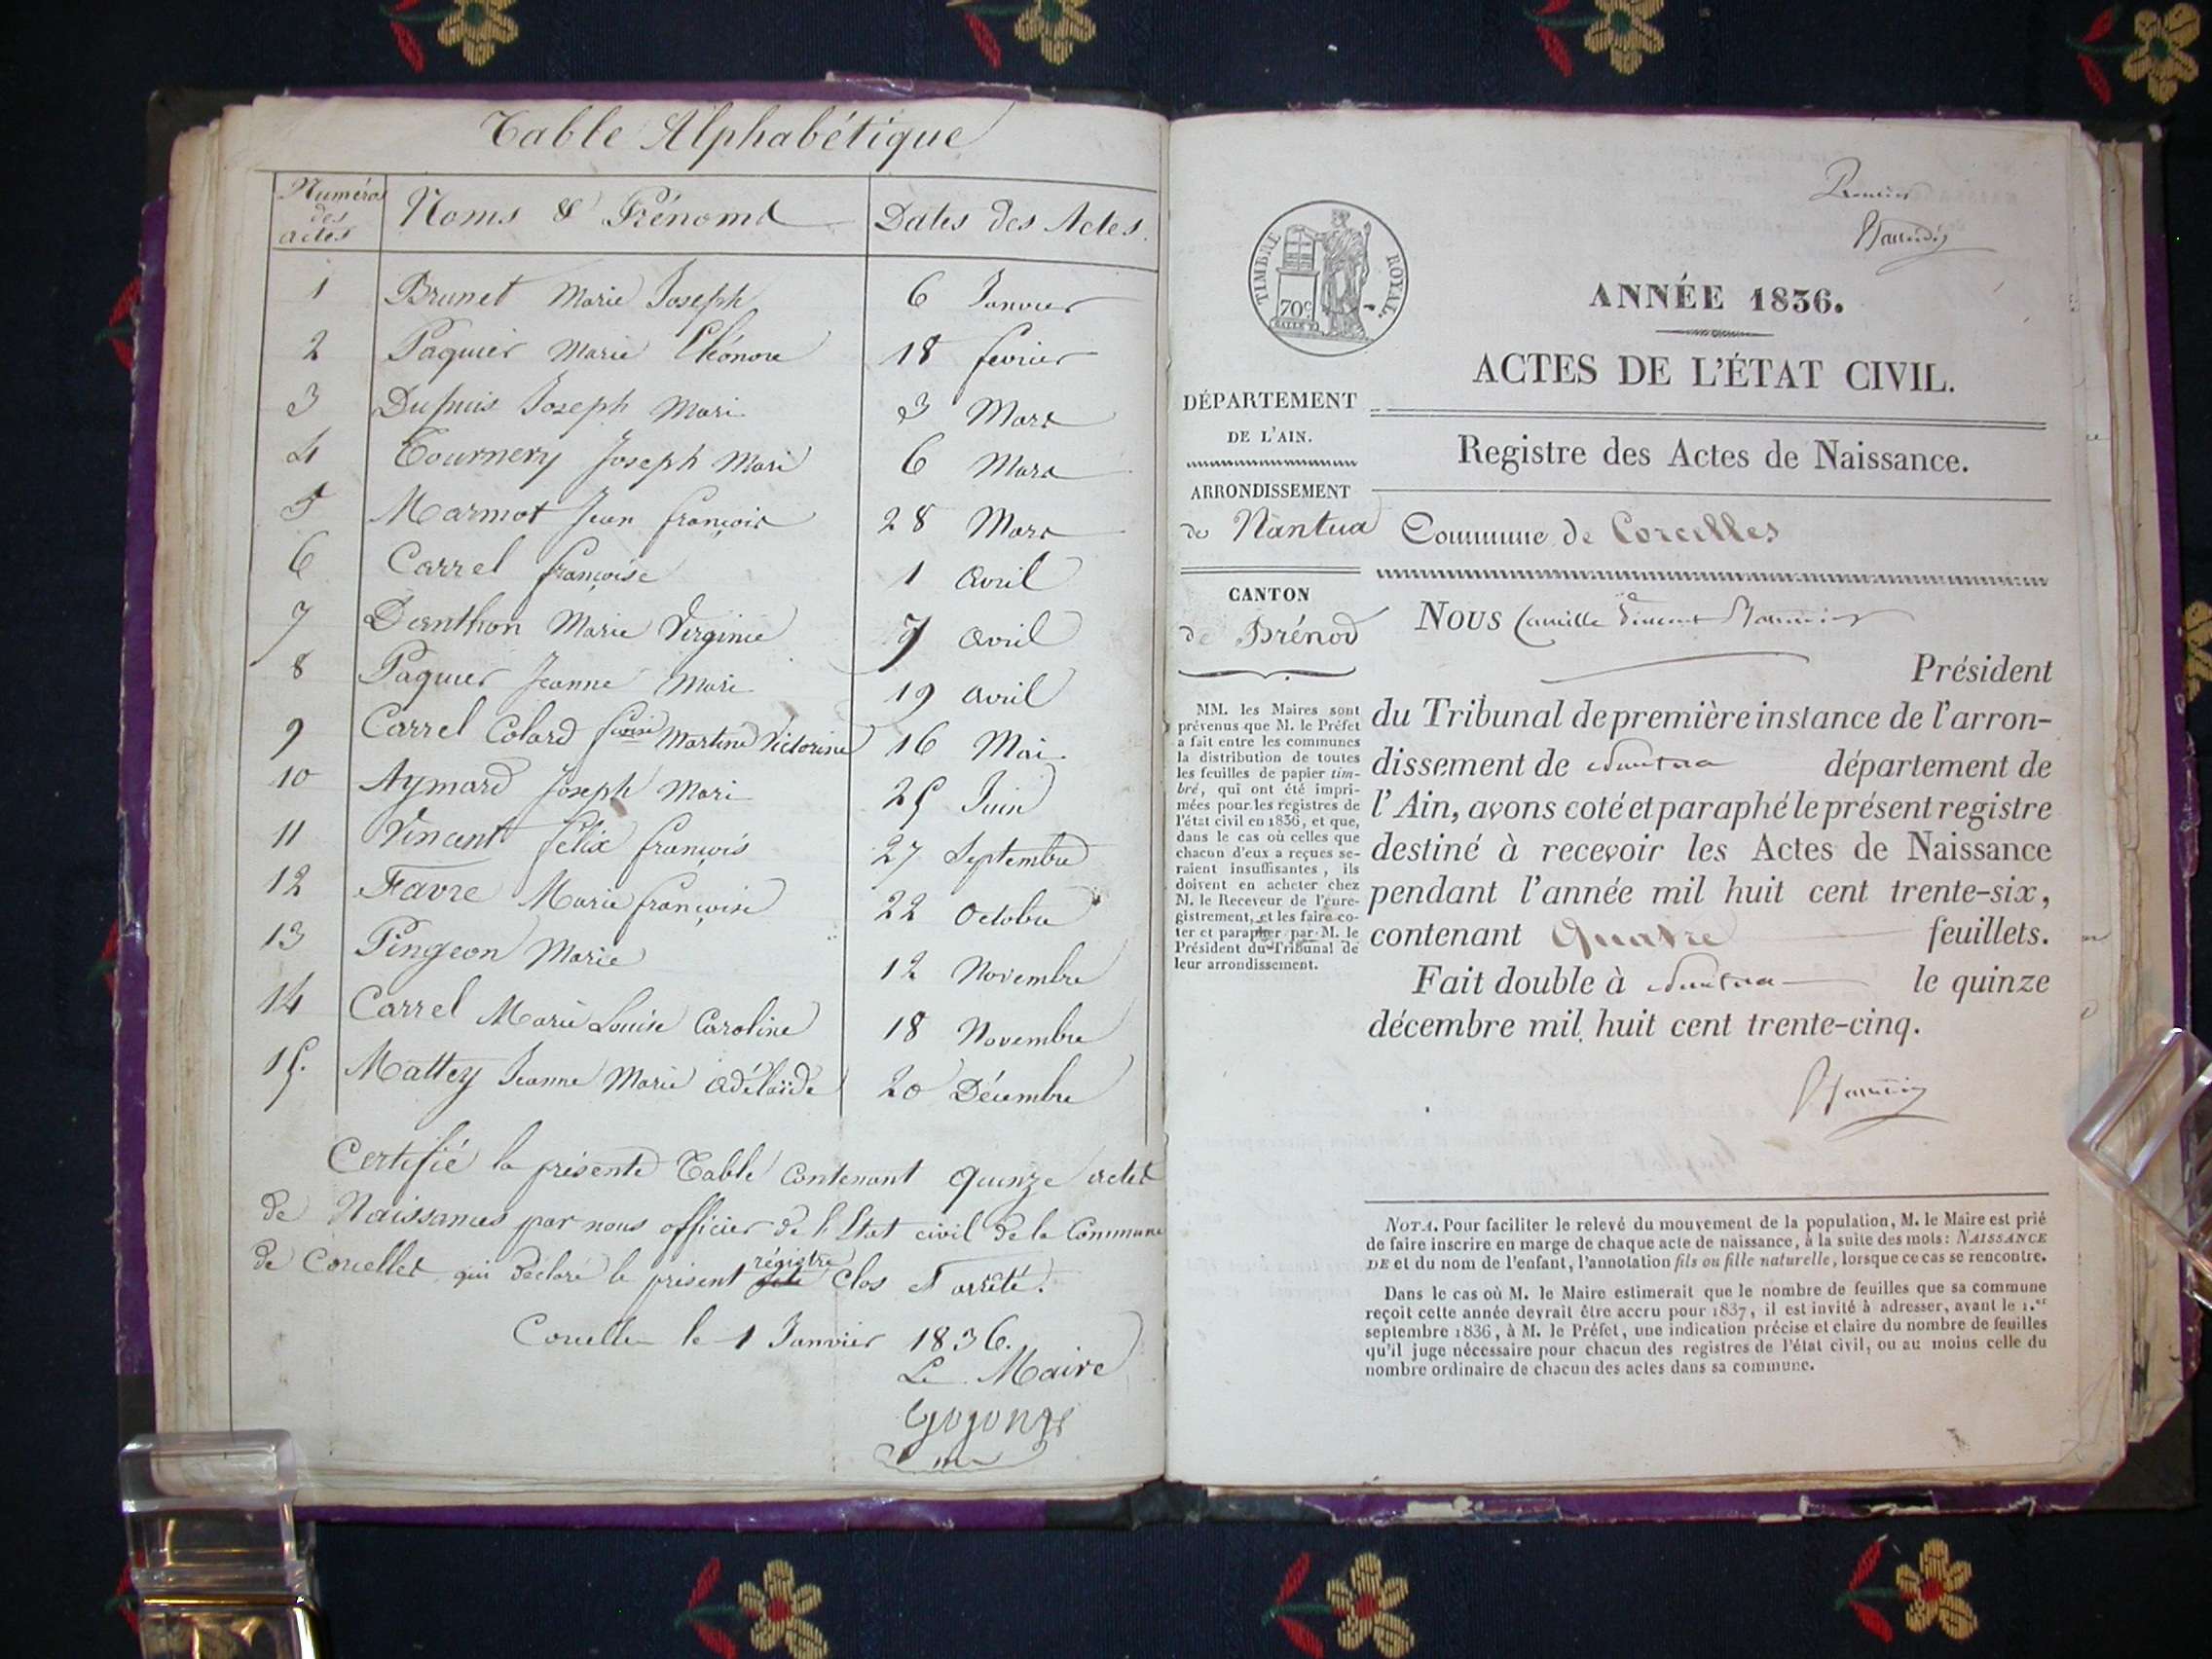 Table Alphabétique
Numéros des actes Noms & Prénoms Dates des Actes
1 Brunet Marie Joseph 6 Janvier
2 Paquier Marie Eléonore 18 fevrier
3 Dupuis Joseph Mari 3 Mars
4 Tournery Joseph Mari 6 Mars
5 Marmot Jean françois 28 Mars
6 Carrel françoise 1 avril
7 Marie Virginie 7 avril
8 Paquier Jeanne Mari 19 avril
9 Carrel Colard fcoise Martine Victorine 16 Mai
10 Aymard Joseph Mari 25 Juin
11 Vincent félix françois 27 Septembre
12 Favre Marie françoise 22 Octobre
13 Pingeon Marie 12 Novembre
14 Carrel Marie Louise Caroline 18 Novembre
15. Mattey Jeanne Marie adélaïde 20 Décembre
Certifié la présente Table Contenant quinze actes
de Naissances par nous officier de l'Etat civil de la Commune
de Corcelles qui déclare le présent régistre Clos et arrêté.
Corcelles le 1 Janvier 1836.
Le Maire
Premier
TIMBRE ROYAL.
70c
ANNÉE 1836.
ACTES DE L'ÉTAT CIVIL.
DÉPARTEMENT
DE L'AIN.
Registre des Actes de Naissance.
ARRONDISSEMENT
de Nantua
Commune de Corcelles
CANTON
de Brénod
NOUS Camille Vincent
Président
du Tribunal de première instance de l'arron-
dissement de Nantua département de
l'Ain, avons coté et paraphé le présent registre
destiné à recevoir les Actes de Naissance
pendant l'année mil huit cent trente-six,
contenant Quatre feuillets.
Fait double à Nantua le quinze
décembre mil huit cent trente-cinq.
MM. les Maires sont
prévenus que M. le Préfet
a fait entre les communes
la distribution de toutes
les feuilles de papier tim-
bré, qui ont été impri-
mées pour les registres de
l'état civil en 1836, et que,
dans le cas où celles que
chacun d'eux a reçues se-
raient insuffisantes, ils
doivent en acheter chez
M. le Receveur de l'enre-
gistrement, et les faire co-
ter et parapher par M. le
Président du Tribunal de
leur arrondissement.
NOTA. Pour faciliter le relevé du mouvement de la population, M. le Maire est prié
de faire inscrire en marge de chaque acte de naissance, à la suite des mots: NAISSANCE
DE et du nom de l'enfant, l'annotation fils ou fille naturelle, lorsque ce cas se rencontre.
Dans le cas où M. le Maire estimerait que le nombre de feuilles que sa commune
reçoit cette année devrait être accru pour 1837, il est invité à adresser, avant le 1.er
septembre 1836, à M. le Préfet, une indication précise et claire du nombre de feuilles
qu'il juge nécessaire pour chacun des registres de l'état civil, ou au moins celle du
nombre ordinaire de chacun des actes dans sa commune.